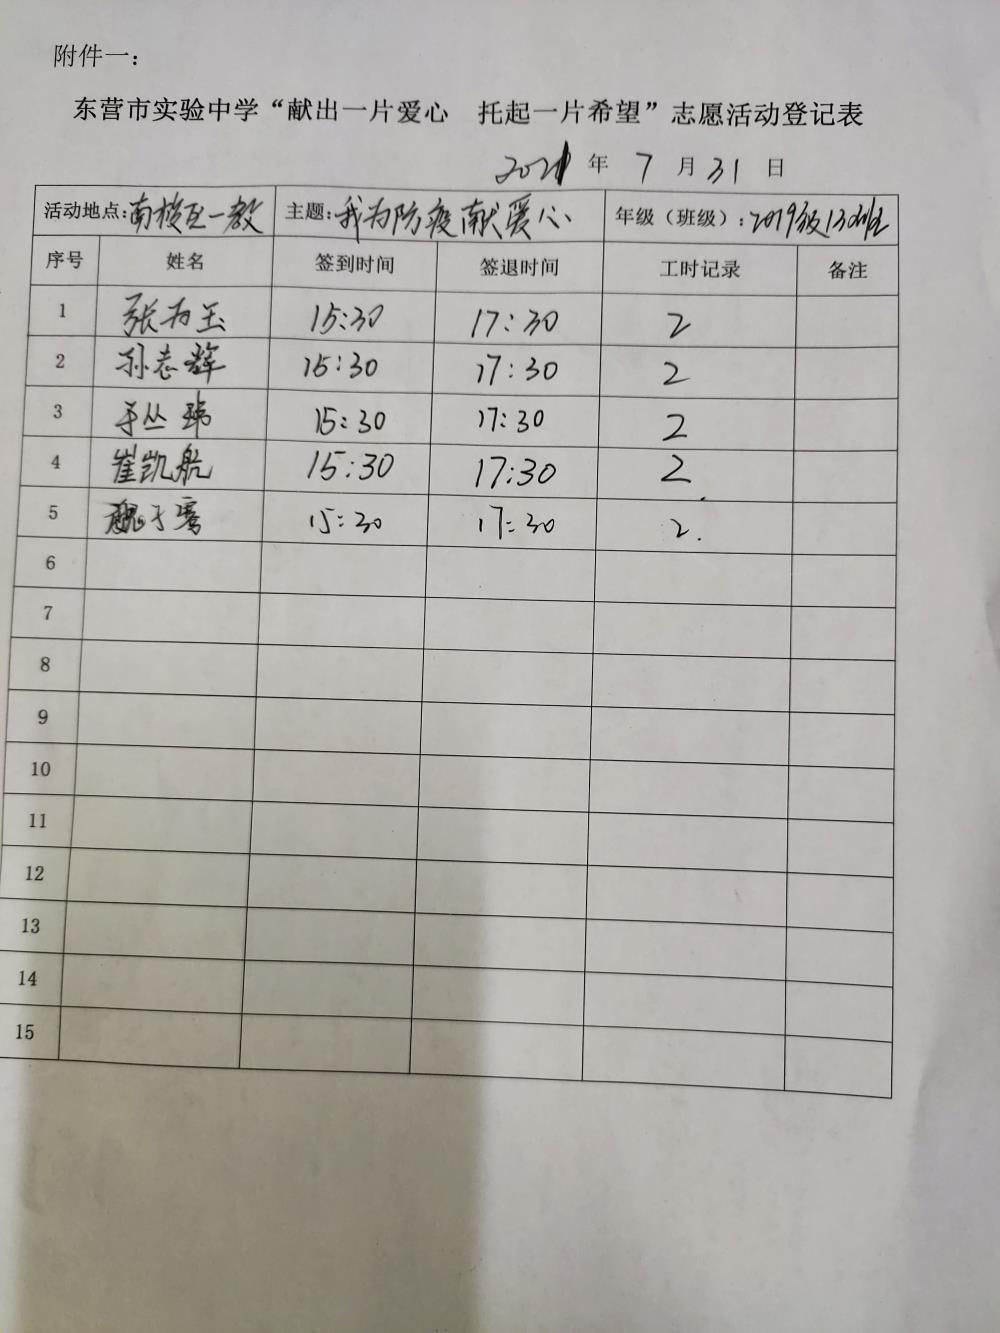 附件一：
东营市实验中学“献出一片爱心 托起一片希望”志愿活动登记表
2021 年 7 月 31 日
活动地点：南校区一教 主题：我为防疫献爱心 年级（班级）：2019级130班
序号 姓名 签到时间 签退时间 工时记录 备注
1 张为玉 15:30 17:30 2
2 孙志辉 15:30 17:30 2
3 于丛玮 15:30 17:30 2
4 崔凯航 15:30 17:30 2
5 魏子骞 15:30 17:30 2
6
7
8
9
10
11
12
13
14
15